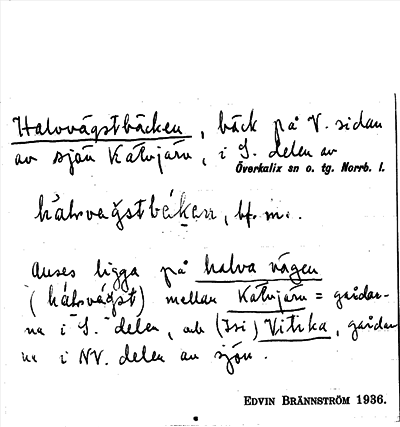 Halvvägstbäcken, bäck på V. sidan
av sjön Kalvjärv, i S. delen av
Överkalix sn o. tg. Norrb. l.
bf. m.
Anses ligga på halva vägen
mellan Kalvjärv = gårdar-
na i S. delen, och (Isi) Vitika, gårdar
na i NV. delen av sjön.
EDVIN BRÄNNSTRÖM 1936.